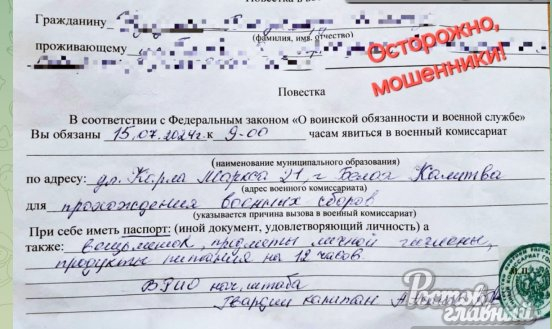 Гражданину
(фамилия, имя, отчество)
проживающему
Осторожно,
мошенники!
Повестка
В соответствии с Федеральным законом «О воинской обязанности и военной службе»
Вы обязаны 15.07.2024г. к 9-00 часам явиться в военный комиссариат
(наименование муниципального образования)
по адресу: ул. Карла Маркса 21, г Белая Калитва
(адрес военного комиссариата)
для прохождения военных сборов
(указывается причина вызова в военный комиссариат)
При себе иметь паспорт: (иной документ, удовлетворяющий личность) а
также: вещмешок, предметы личной гигиены,
продукты питания на 12 часов
ВРИО нач. штаба
Гвардии капитан
Ростов
главный